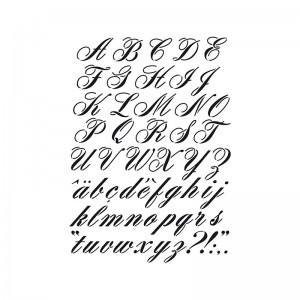 A B C D E
F G H I J
K L M N O
P Q R S T
U V W X Y Z
ä b ç d è f g h i j
k l m n o p q r s
"t u v w x y z ? ! : , "